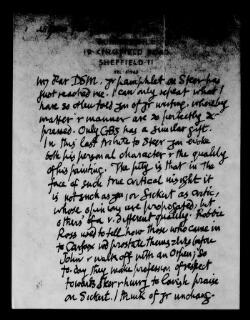 KINGFIELD ROAD
SHEFFIELD 11
My dear DSM. Yr pamphlet on Steer has
just reached me. I can only repeat what I
have so often told you of yr writing, whereby
matter & manner are so perfectly ex-
pressed. Only GBS has a similar gift.
In this last tribute to Steer you evoke
both his personal character & the quality
of his painting. The pity is that in the
face of such true critical insight it
is not such as you or Sickert as critic,
whose opinions are propogated, but
others of a v. different quality. Robbie
Ross used to tell how those who came in
to Carfax wd prostrate themselves before
John & walk off with an Orpen; So
to-day they make profession of respect
towards Steer & hurry to lavish praise
on Sickert. I think of yr unchang-